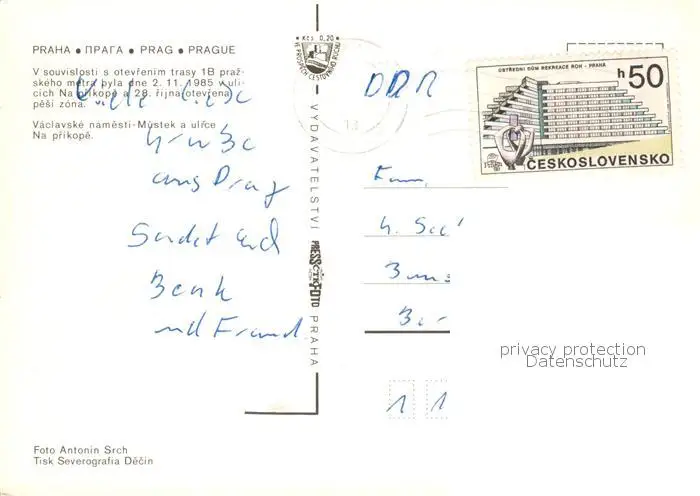 PRAHA ● ПРАГА ● PRAG ● PRAGUE
V souvislosti s otevřením trasy 1B praž-
ského metra byla dne 2. 11. 1985 v uli-
cích Na příkopě a 28. října otevřena
pěší zóna.
Václavské náměstí-Můstek a ulice
Na příkopě.
Viele liebe
aus Prag
Sendet Euch
und
Foto Antonín Srch
Tisk Severografia Děčín
Kčs 0,20
VE PROSPĚCH CESTOVNÍHO RUCHU
VYDAVATELSTVÍ PRESSFOTO PRAHA
DDR
13
ÚSTŘEDNÍ DŮM REKREACE ROH - PRAHA
h50
ČESKOSLOVENSKO
Fam.
1 1
privacy protection
Datenschutz